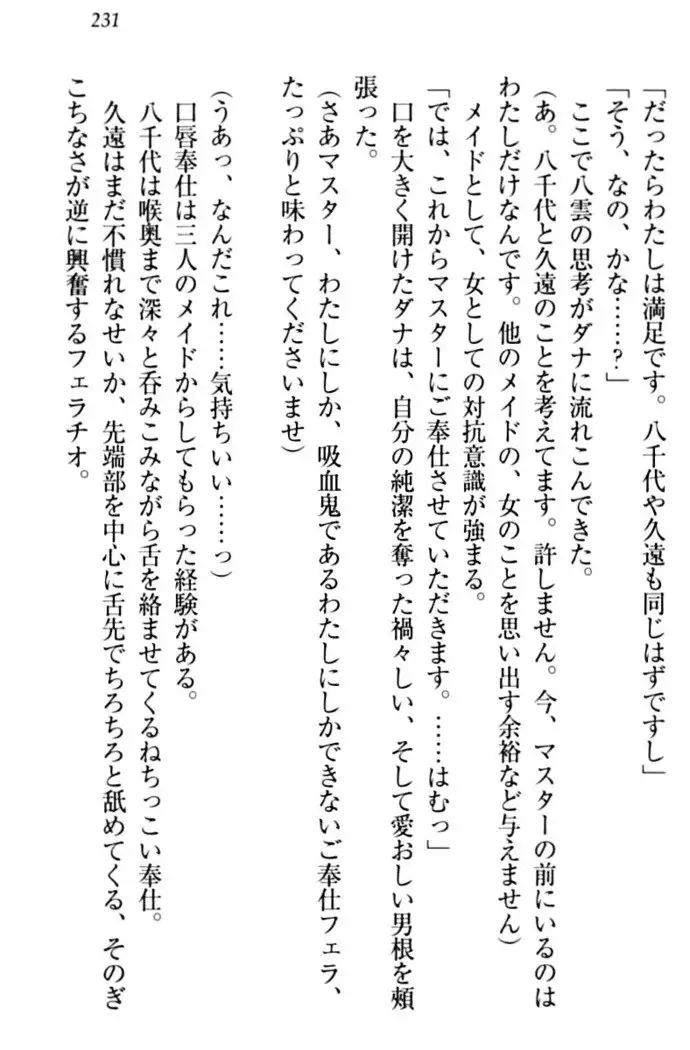 231
「だったらわたしは満足です。八千代や久遠も同じはずですし」
「そう、なの、かな……？」
ここで八雲の思考がダナに流れこんできた。
（あ。八千代と久遠のことを考えてます。許しません。今、マスターの前にいるのは
わたしだけなんです。他のメイドの、女のことを思い出す余裕など与えません）
メイドとして、女としての対抗意識が強まる。
「では、これからマスターにご奉仕させていただきます。……はむっ」
口を大きく開けたダナは、自分の純潔を奪った禍々しい、そして愛おしい男根を頬
張った。
（さあマスター、わたしにしか、吸血鬼であるわたしにしかできないご奉仕フェラ、
たっぷりと味わってくださいませ）
（うあっ、なんだこれ……気持ちいい……っ）
口唇奉仕は三人のメイドからしてもらった経験がある。
八千代は喉奥まで深々と呑みこみながら舌を絡ませてくるねちっこい奉仕。
久遠はまだ不慣れなせいか、先端部を中心に舌先でちろちろと舐めてくる、そのぎ
こちなさが逆に興奮するフェラチオ。